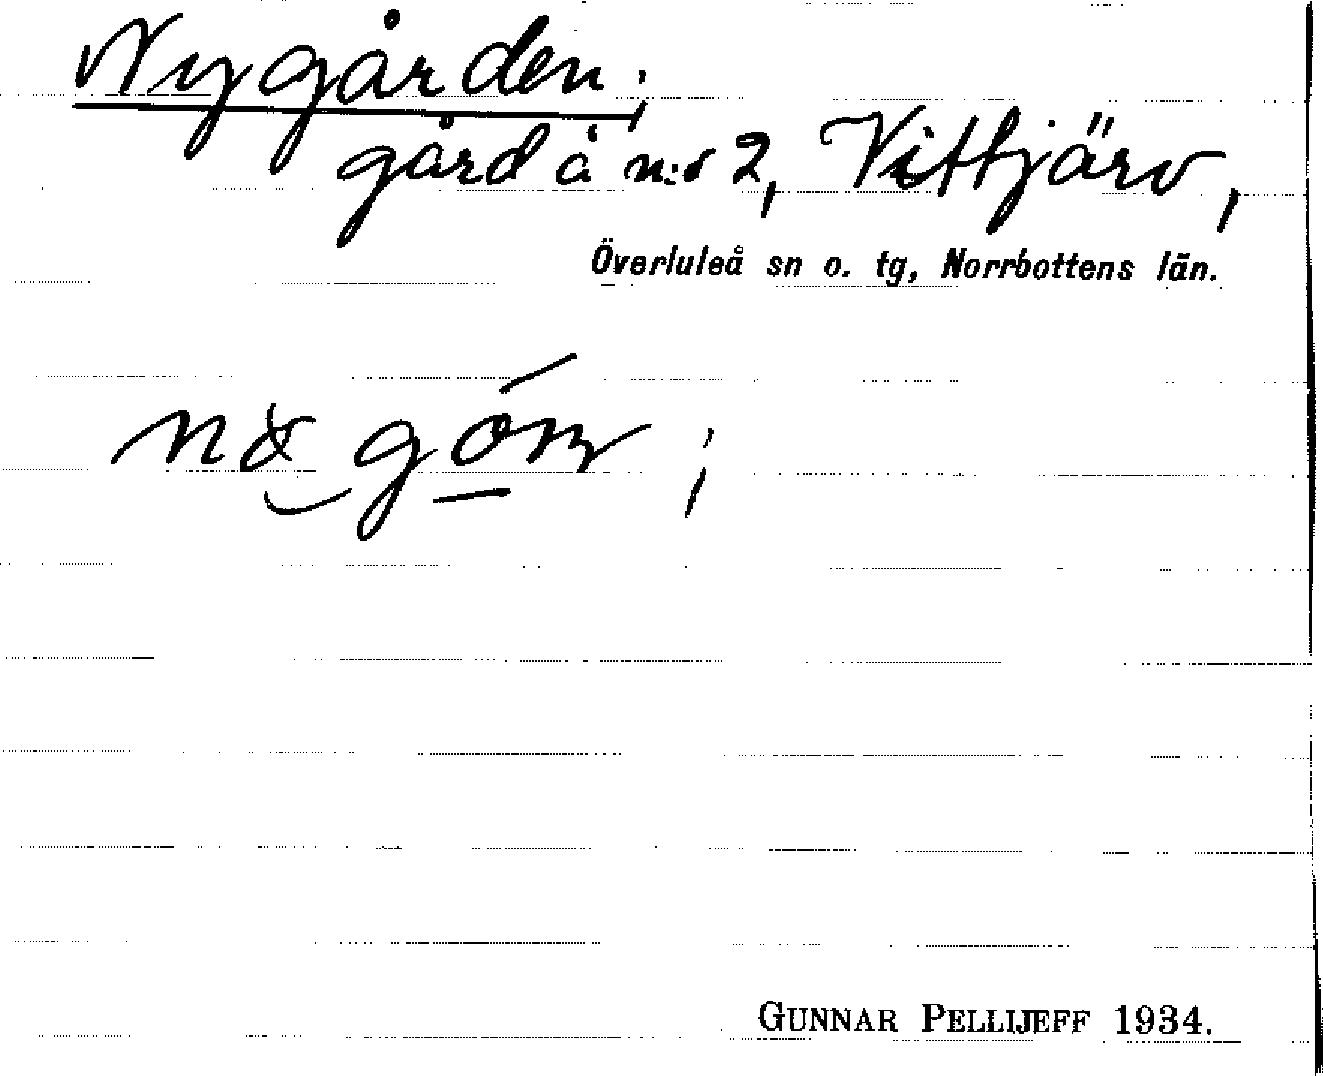 Nygården;
gård å n:o 2, Vittjärv,
Överluleå sn o. tg, Norrbottens län.
GUNNAR PELLIJEFF 1934.